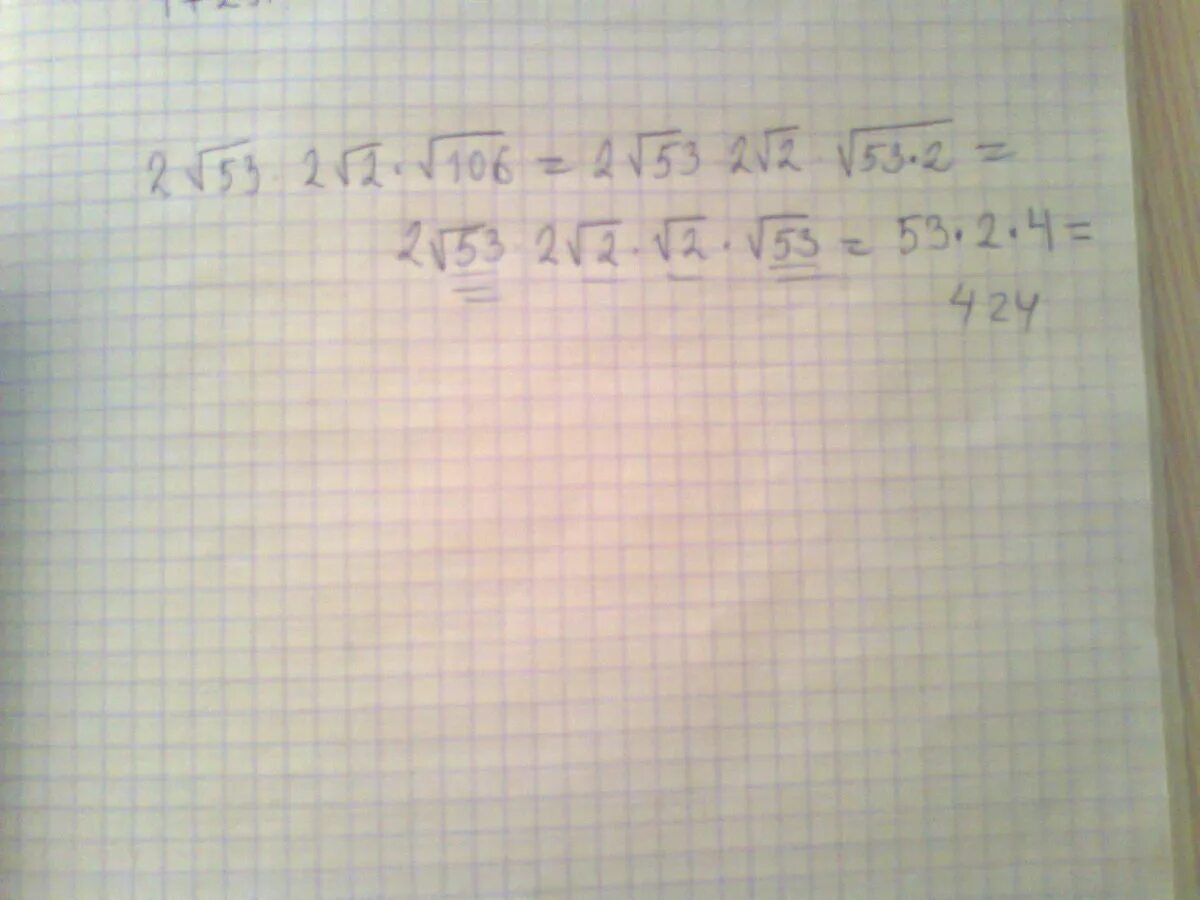 2√53 · 2√2 · √106 = 2√53 2√2 √53·2 =
2√53 · 2√2 · √2 · √53 = 53·2·4 =
424